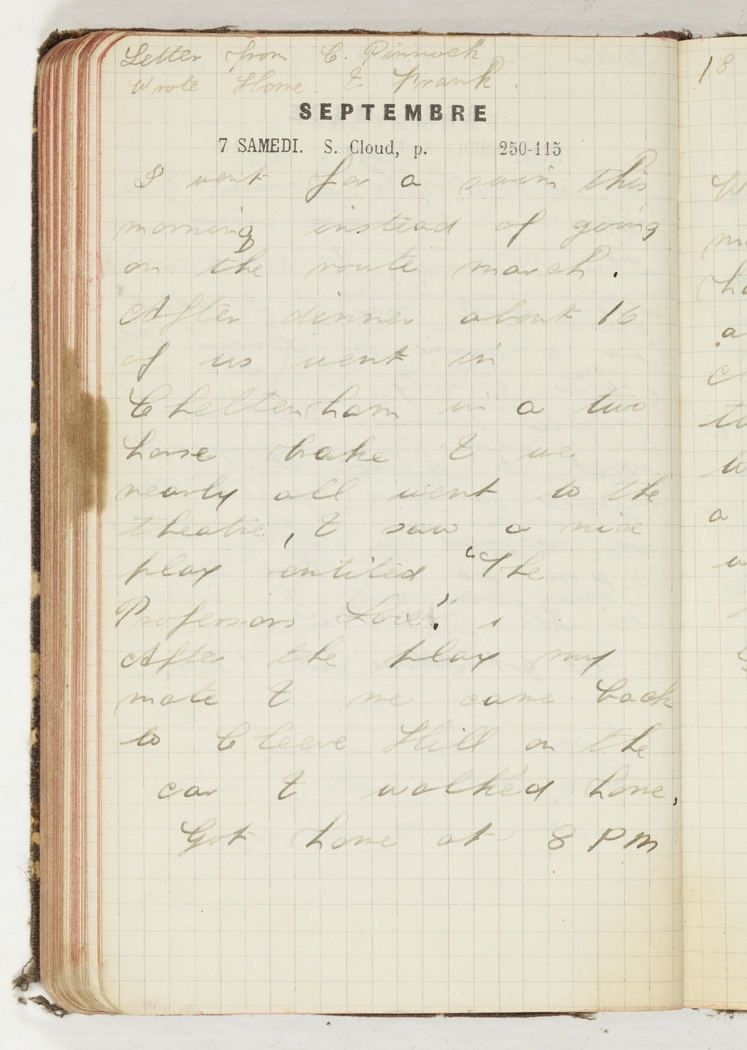 Letter from C. Pinnock
Wrote Home. & Frank.
SEPTEMBRE
7 SAMEDI. S. Cloud, p. 250-115
I went for a swim this
morning instead of going
on the route march.
After dinner about 16
of us went in
Cheltenham in a two
horse brake & we
nearly all went to the
theatre, & saw a nice
play entitled "The
Professors Love".
After the play my
mate & me came back
to Cleeve Hill on the
car & walked home,
Got home at 8 PM
18